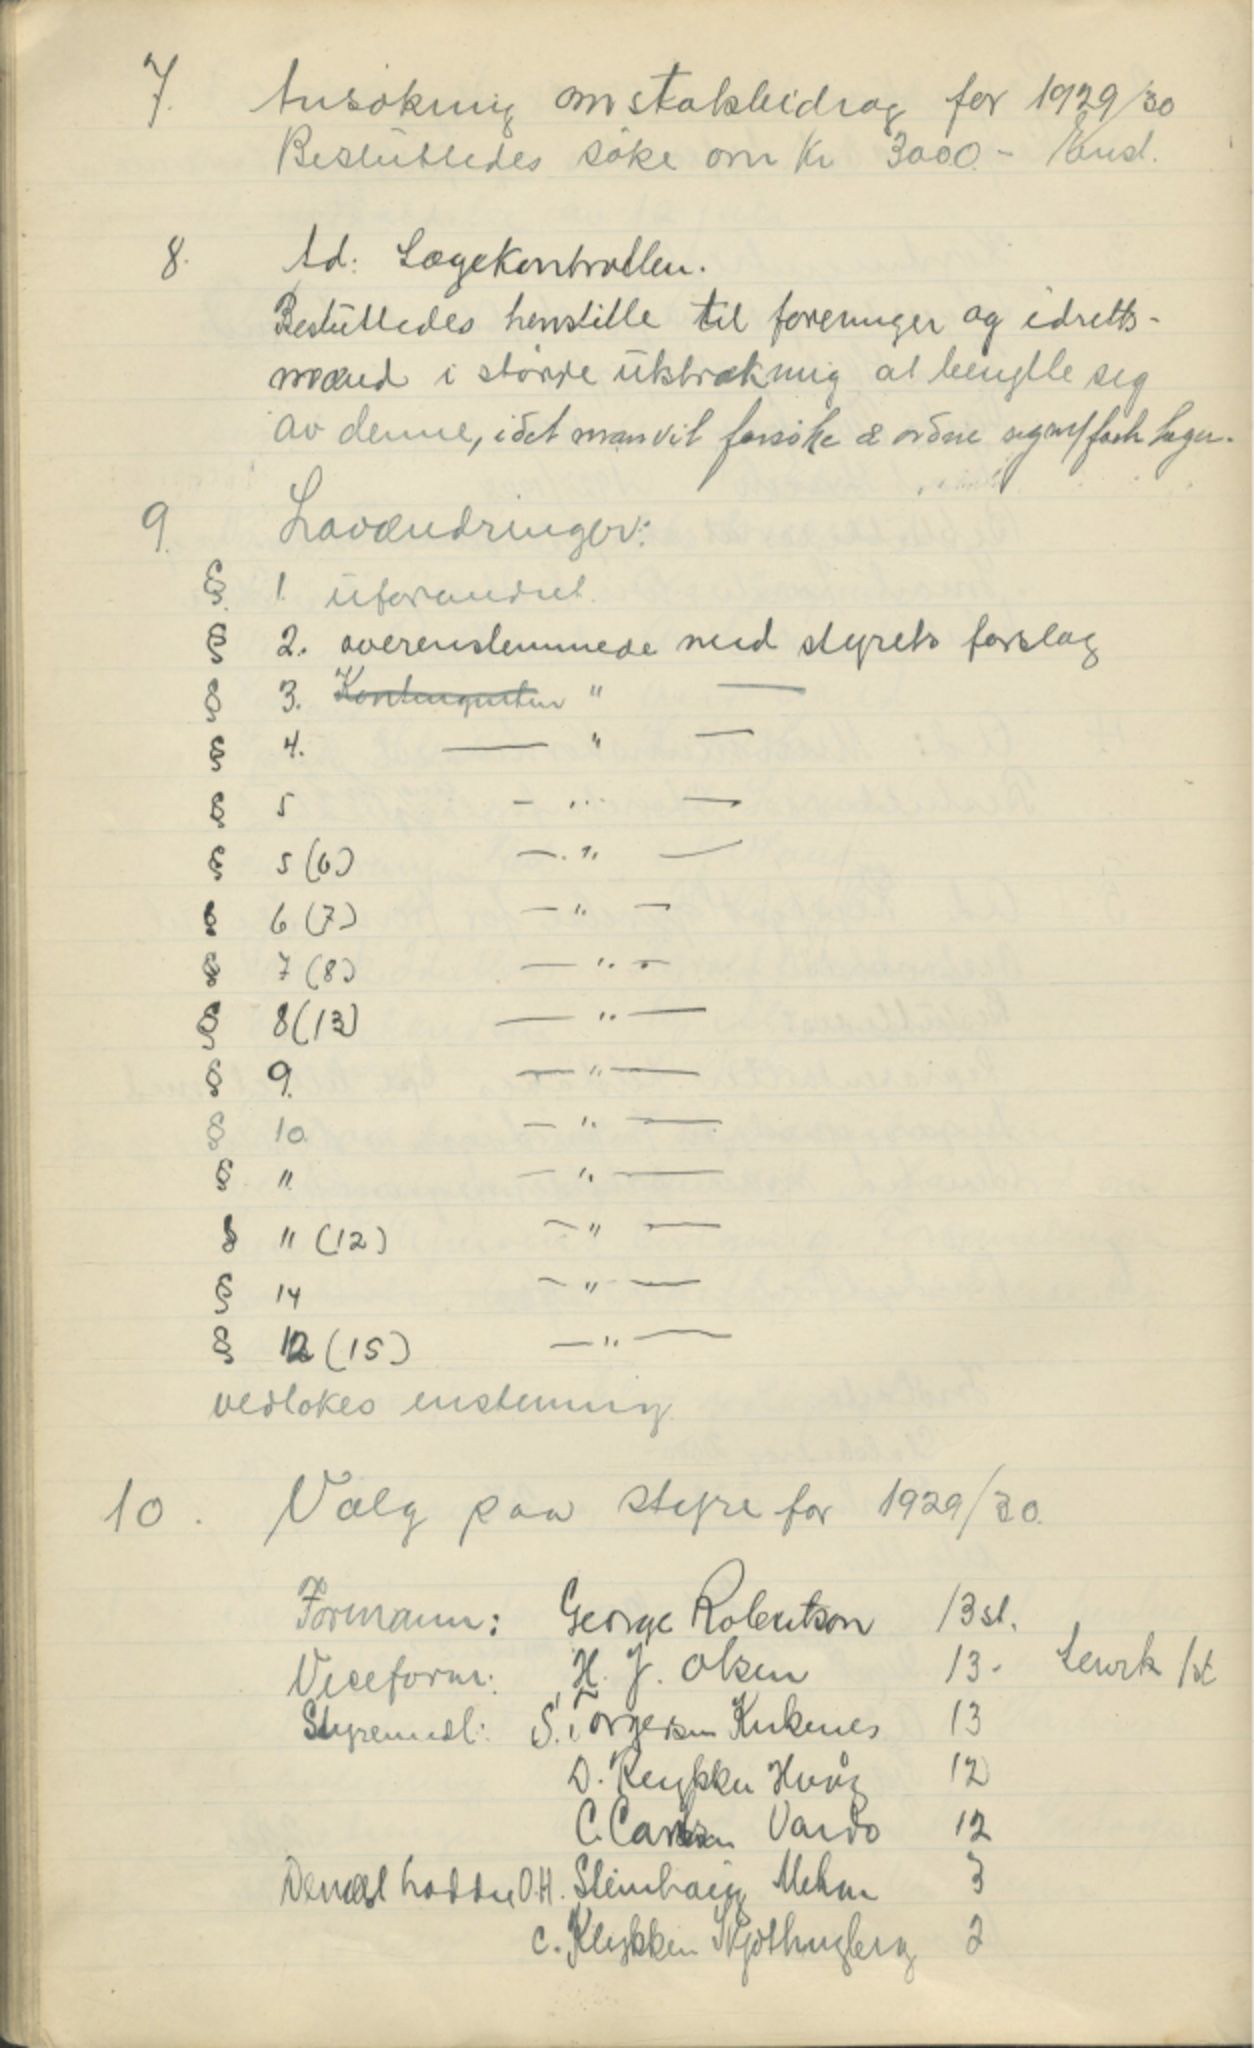 7. Ansökning om statsbidrag for 1929/30
Besluttedes söke om Kr 3000.- Enst.
8. Ad: Lægekontrollen.
Besluttedes henstille til foreninger og idretts-
mænd i större utstrækning at benytte seg
av denne, idet man vil forsöke å ordne seg m/ fast læger.
9. Lovændringer:
§ 1. uforandret.
§ 2. overenstemmede med styrets forslag
§ 3. Kontingenten " —
§ 4. — " —
§ 5 — " —
§ 5 (6) — " —
§ 6 (7) — " —
§ 7 (8) — " —
§ 8 (13) — " —
§ 9. — " —
§ 10 — " —
§ 11 — " —
§ 11 (12) — " —
§ 14 — " —
§ 12 (15) — " —
vedtokes enstemmig
10. Valg paa styre for 1929/30.
Formann: George Robertson 13 st.
Viceform: H. J. Olsen 13 - 1 st
Styremedl: S. Torgersen Kirkenes 13
D. Reykken 12
C. Carlsen Vardö 12
Dernæst hadde O.H. Steinhaug Mehan 3
C. Klykken 2